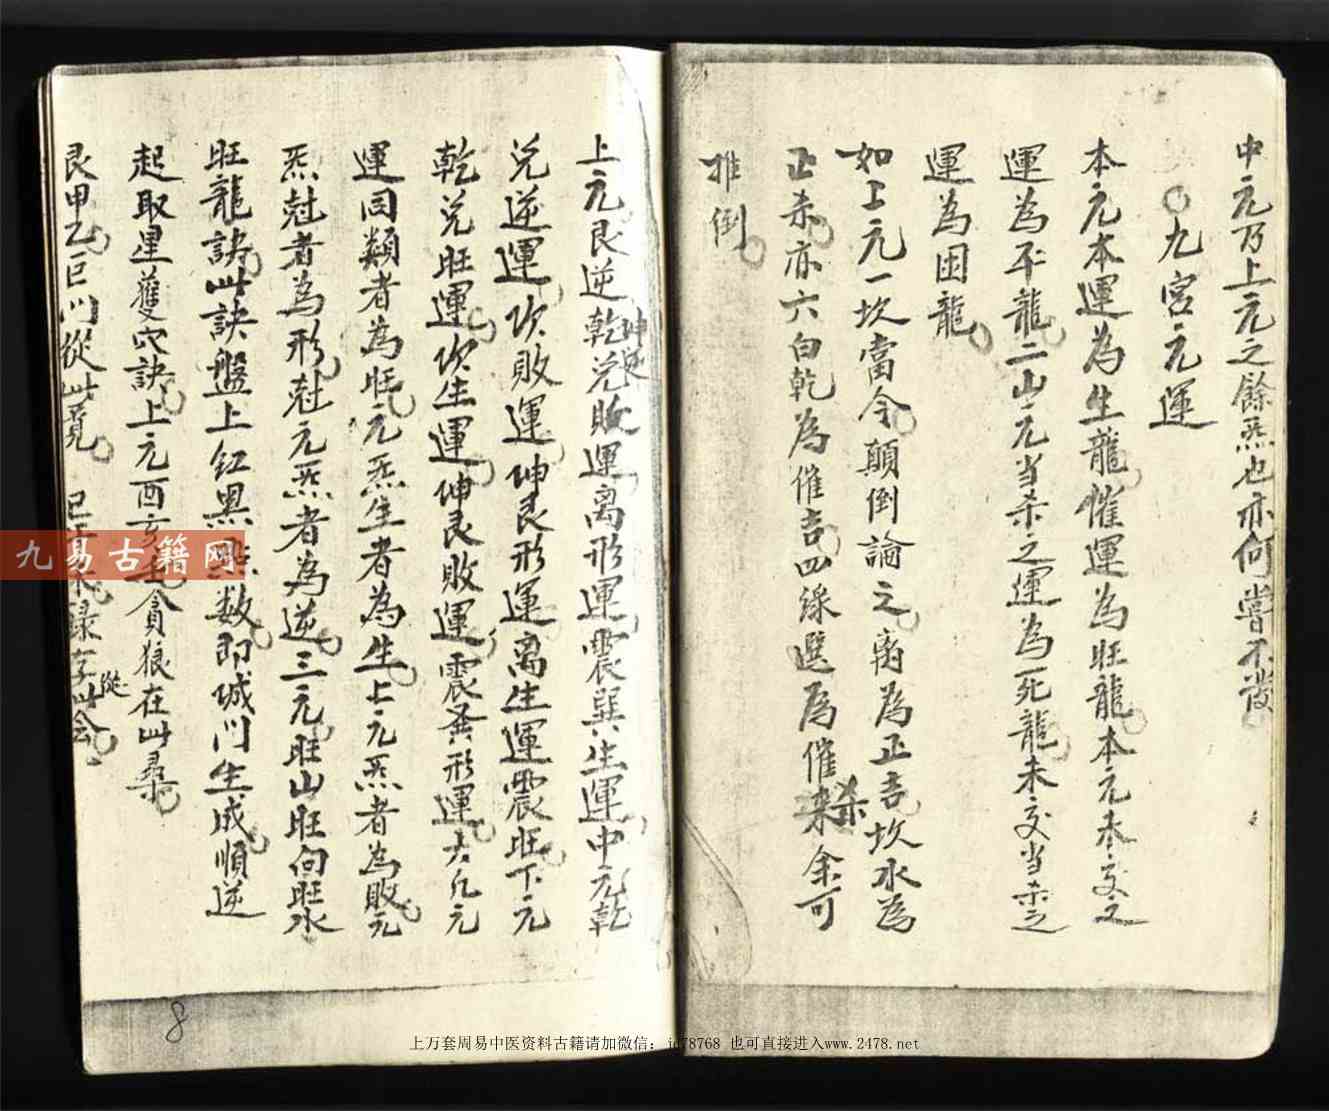 中元乃上元之餘炁也亦何嘗不發
九宮元運
本元本運為生龍催運為旺龍本元未交之
運為平龍二山元当杀之運為死龍未交当杀之
運為困龍
如上元一坎當令顛倒論之离為正吉坎水為
正杀亦六白乾為催吉四綠選為催杀余可
推倒
上元艮逆乾兌敗運离形運震巽生運中元乾
坤逆
兌逆運坎敗運坤艮形運离生運震旺下元
乾兌旺運坎生運坤艮敗運震巽形運大凢元
運同類者為旺元炁生者為生上元炁者為敗元
炁尅者為形尅元炁者為逆三元旺山旺向旺水
旺龍訣此訣盤上紅黑點数即城门生成順逆
起取星獲穴訣上元酉亥 貪狼在此尋
艮甲乙巨门從此覓 巳 祿存從此会
8
九易古籍网
上万套周易中医资料古籍请加微信： id78768 也可直接进入www.2478.net